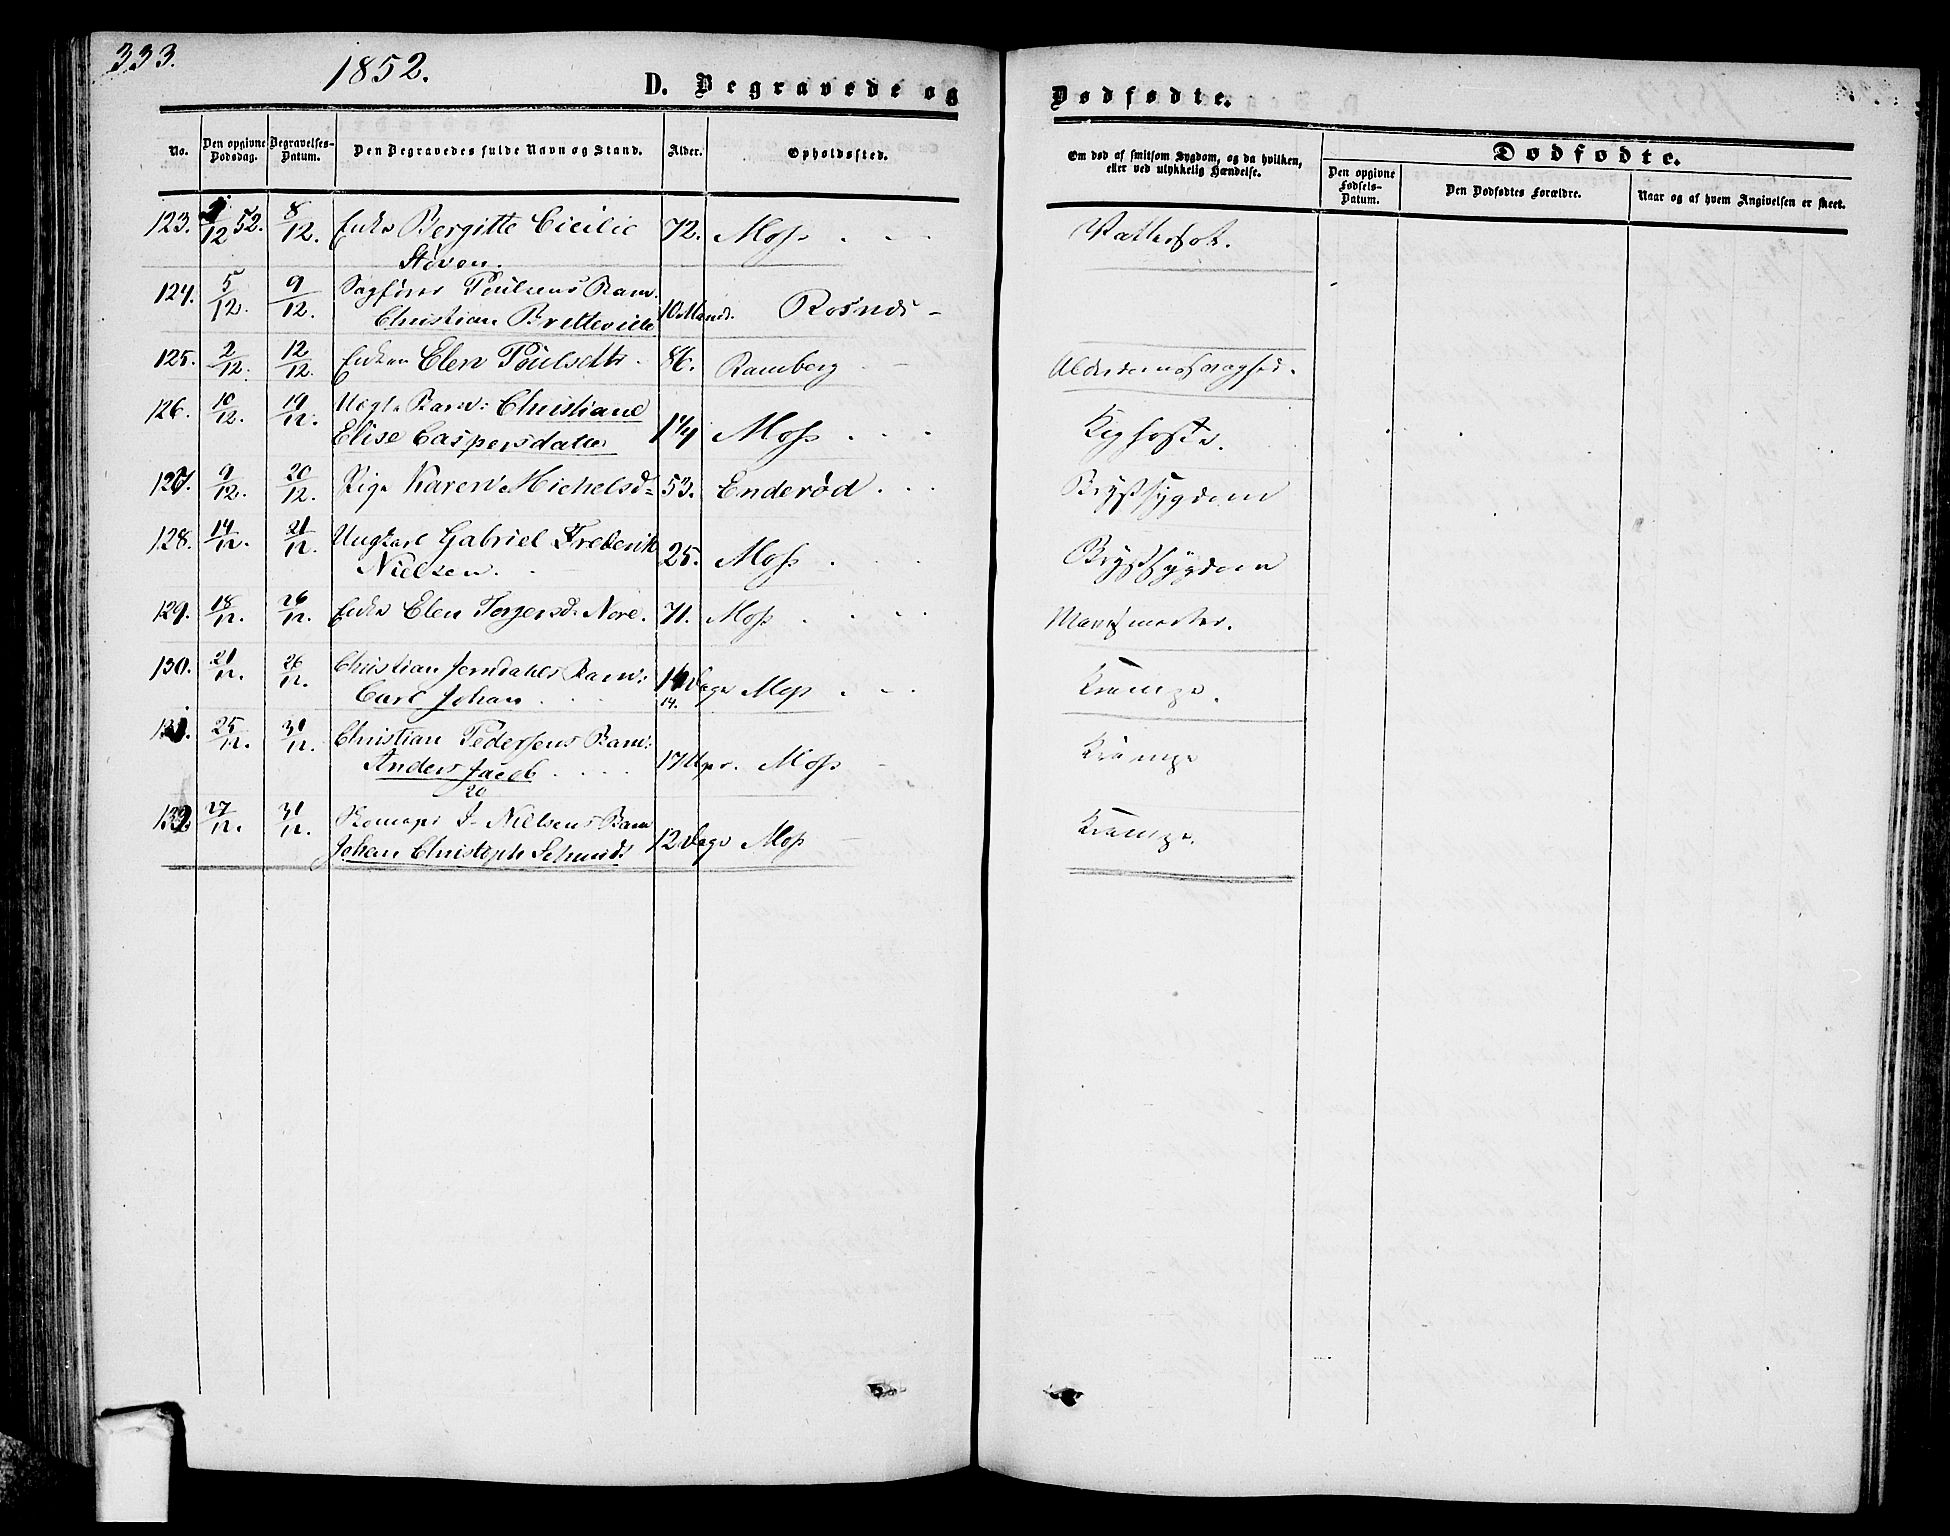 333.
1852.
D. Begravede og
Dødfødte.
No.
Den opgivne Dødsdag.
Begravelses-Datum.
Den Begravedes fulde Navn og Stand.
Alder.
Opholdssted.
Om død af smitsom Sygdom, og da hvilken, eller ved ulykkelig Hændelse.
Dødfødte.
Den opgivne Fødsels-Datum.
Den Dødfødtes Forældre.
Naar og af hvem Angivelsen er skeet.
123. /12 52. 8/12. Enke Bergitte Cicilie 72. Moss Vattersot.
Støven.
124. 5/12. 9/12. Sagfører Poulsens Barn
Christian Bretteville 10 Maand. Rosnæs
125. 2/12. 12/12. Enken Elen Poulsdtr. 86. Ramberg Alderdomssvaghed.
126. 10/12. 19/12. Uægte Barn: Christiane
Elise Caspersdatter 1 1/4 Moss Kighoste.
127. 9/12. 20/12. Pige Karen Michelsd= 53. Enderød Brystsygdom
128. 14/12. 21/12. Ungkarl Gabriel Frederik 25. Moss Brystsygdom
Nielsen.
129. 18/12. 26/12. Enke Elen Torgersd. Nore. 71. Moss
130. 21/12. 26/12. Christian Jerndahls Barn: Dage Moss Krampe.
Carl Johan 14.
131. 25/12. 31/12. Christian Pedersens Barn: 17 Uger. Moss Krampe
Anders Jacob
20
132. 27/12. 31/12. J. Nielsens Barn
Johan Christoph Schmidt 12 Dage Moss Krampe.